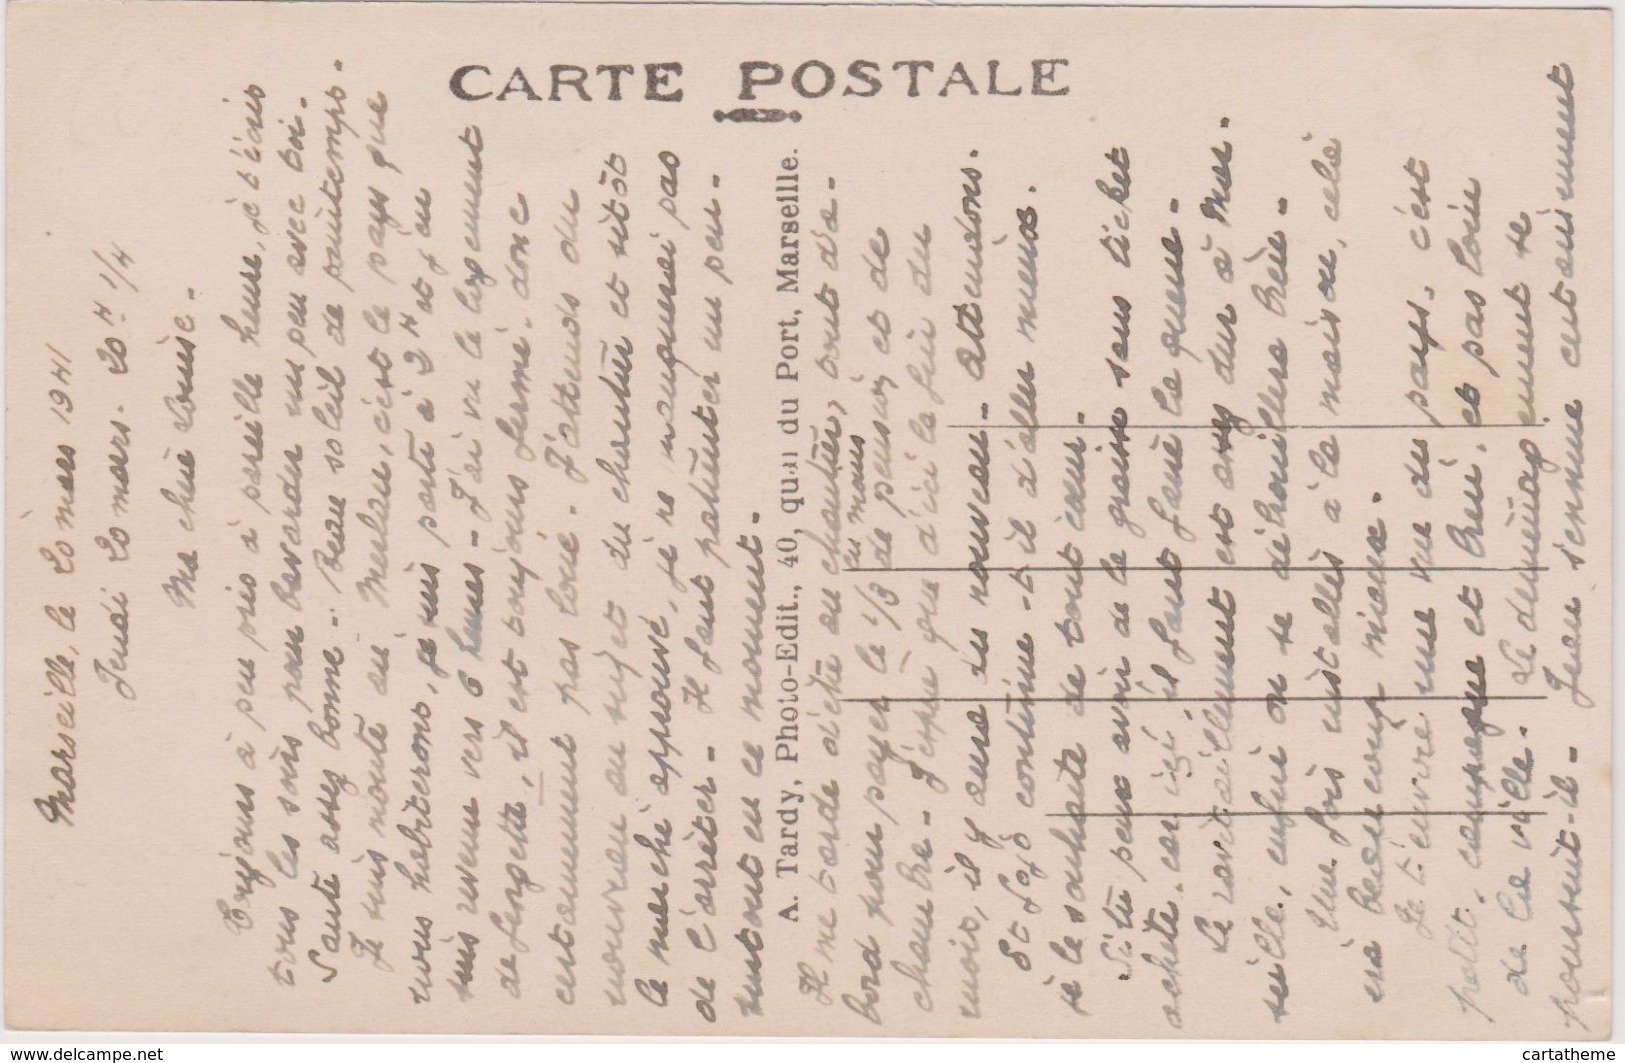 CARTE POSTALE
A. Tardy, Photo-Edit., 40, quai du Port, Marseille.
Marseille, le 20 mars 1941
Jeudi 20 mars. 20 H 1/4
Ma chère Louise.
Toujours à peu près à pareille heure, je t'écris
tous les soirs pour bavarder un peu avec toi.
Santé assez bonne - Beau soleil de printemps.
Je suis monté au Merlan, c'est le pays que
nous habiterons, je suis parti à 2 H et j'en
suis revenu vers 6 heures - J'ai vu le logement
de Gengetta, il est toujours fermé. donc
certainement pas loué. J'attends du
nouveau au sujet du chantier et sitôt
le marché approuvé, je ne manquerai pas
de l'arrêter. Il faut patienter un peu
surtout en ce moment.
Il me tarde d'être au chantier, tout d'a-
bord pour payer le 1/3 de pension et de
en moins
chambre. J'espère que d'ici la fin du
mois, il y aura du nouveau. Attendons.
St José continue-t-il d'aller mieux.
Je le souhaite de tout cœur.
Si tu peux avoir de la graisse sans ticket
achète. car ici, il faut faire la queue.
Le ravitaillement est assez dur à Mar-
seille, enfin on se débrouillera bien.
Une fois installés à la maison, cela
ira beaucoup mieux.
Je t'envoie une vue du pays, c'est
petit, campagne et bien, et pas loin
de la ville. Le déménagement se
poursuit-il. Jean s'ennuie certainement
www.delcampe.net
cartatheme